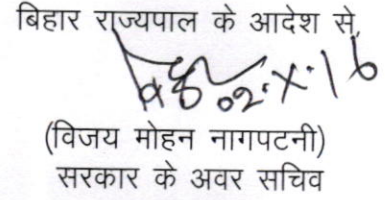 बिहार राज्यपाल के आदेश से,
02.X.16
(विजय मोहन नागपटनी)
सरकार के अवर सचिव